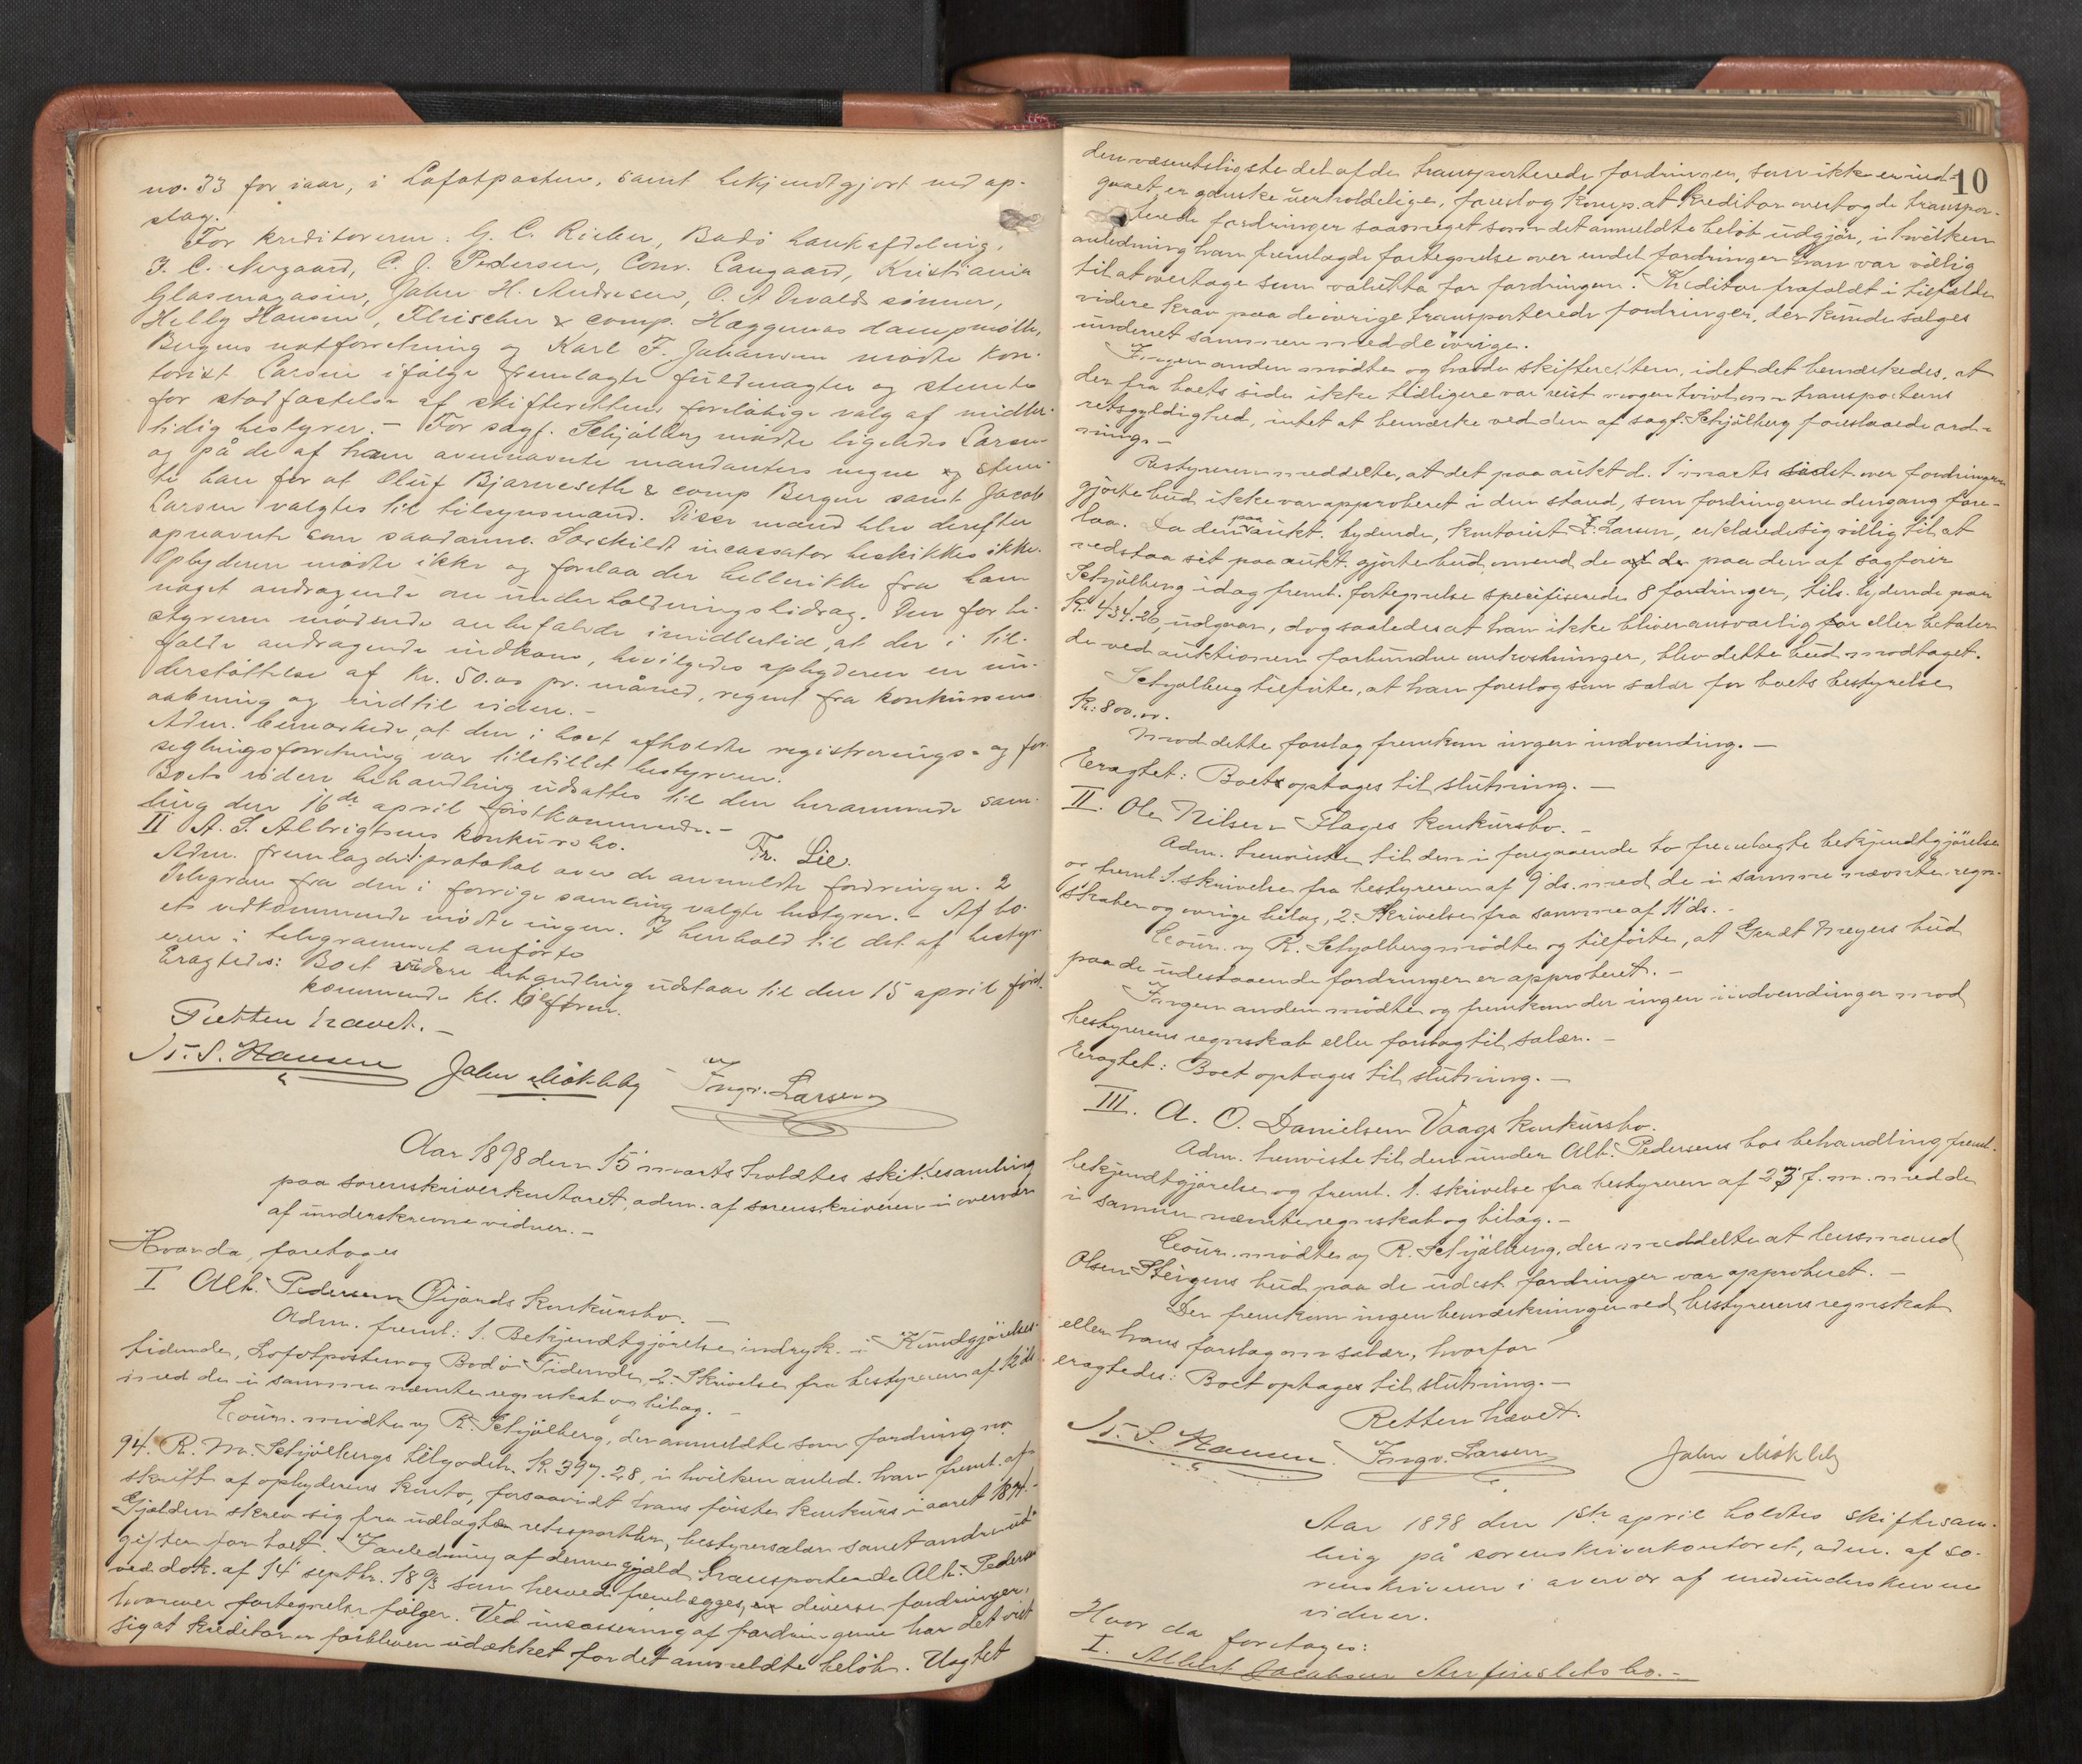 no. 33 for iaar, i Lofotposten, samt bekjendtgjort ved op-
slag.
For kreditorerne: G. C. Rieber, Bodö bankafdeling,
J. C. Nergaard, C. J. Pedersen, Conr. Langaard, Kristiania
Glasmagasin, Johan H. Andresen, O. A. Devolds sönner,
Helly Hansen, Fleischer & comp. Hæggernæs dampmölle,
Bergens notforretning og Karl F. Johansen mödte kon-
torist Larsen ifölge fremlagte fuldmagter og stemte
for stadfæstelse af skifterettens forelöbige valg af midler-
tidig bestyrer. – For sagf. Schjölberg mödte ligeledes Larsen
og på de af ham ovennævnte mandanters vegne og stem-
te han for at Oluf Bjørneseth & comp Bergen samt Jacob
Larsen valgtes til tilsynsmænd. Disse mænd blev derefter
opnævnt som saadanne. Særskildt incassator beskikkes ikke.
Opbyderen mödte ikke og forelaa der heller ikke fra ham
noget andragende om underholdningsbidrag. Den for be-
styreren mödende anbefalede imidlertid, at der i til-
fælde andragende indkom, bevilgedes opbyderen en un-
derstöttelse af Kr. 50.00 pr. måned, regnet fra konkursens
aabning og indtil videre. –
Adm. bemærkede, at den i boet afholdte registrerings- og for-
seglingsforretning var tilstillet bestyreren.
Boets videre behandling udsattes til den berammede sam-
ling den 16de april förstkommende. –
Fr. Lie.
II A. S. Albrigtsens konkursbo.
Adm. fremlagde 1. protokol over de anmeldte fordringer. 2
Telegram fra den i forrige samling valgte bestyrer. – Af bo-
ets vedkommende mödte ingen. I henhold til det af bestyr-
eren i telegrammet anförte
Eragtedes: Boet videre behandling udstaar til den 15 april först-
kommende kl. 10 form.
Retten hævet. –
N. S. Hansen Johan Möklebÿ Ingv. Larsen
Aar 1898 den 15 marts holdtes skiftesamling
paa sorenskriverkontoret, adm. af sorenskriveren i overvær
af underskrevne vidner. –
Hvor da foretages
I Alb. Pedersen Öijords konkursbo. –
Adm. freml: 1. Bekjendtgjörelse indryk. i Kundgjörelses-
tidende, Lofotposten og Bodö Tidende, 2. Skrivelse fra bestyreren af 12 ds
med de i samme nævnte regnskab og bilag. –
Cour. mödte og R. Schjölberg, der anmeldte som fordring no.
94. R. M. Schjölbergs tilgodeh. Kr. 397.28, i hvilken anled. han freml. af-
skrift af opbyderens konto, forsaavidt hans förste konkurs i aaret 1891.
Gjælden skrev sig fra udlagte retssportler, bestyrersalær samt andre ud-
gifter for boet. I anledning af denne gjæld transporterede Alb. Pedersen
ved dok. af 14 septbr. 1893 som herved fremlægges, diverse fordringer,
hvorover fortegnelse fölger. Ved incassering af fordringerne har det vist
sig at kreditoren er forbleven udækket for det anmeldte belöb. Uagtet
10
den væsentligste del af de transporterede fordringer, som ikke er ind-
gaaet, er ganske uerholdelige, foreslog komp. at kreditor overtog de transpor-
terede fordringer saameget som det anmeldte belöb udgjör, i hvilken
anledning han fremlagde fortegnelse over endel fordringer han var villig
til at overtage som valutta for fordringen. Kreditor frafaldt i tilfælde
videre krav paa de övrige transporterede fordringer, der kunde sælges
underet sammen med de övrige.
Ingen anden mödte og havde skifteretten, idet det bemærkedes, at
der fra boets side ikke tidligere var reist nogen tvivl om transportens
retsgyldighed, intet at bemærke ved den af sagf. Schjölberg foreslaaede ord-
ning. –
Bestyreren meddelte, at det paa aukt. d. 1 marts sidst over fordringerne
gjorte bud ikke var approberet i den stand, som fordringerne dengang fore-
laa. Da den paa aukt. bydende, kontorist I. Larsen, erklærede sig villig til at
vedstaa sit paa aukt. gjorte bud, omend de af de paa den af sagförer
Schjölberg idag freml. fortegnelse spesifiserede 8 fordringer, tils. lydende paa
Kr. 434.26, udgaar, dog saaledes at han ikke bliver ansvarlig for eller betaler
de ved auktionen forbundne omkostninger, blev dette bud modtaget.
Schjölberg tilföiede, at han foreslog som salær for boets bestyrelse
Kr. 800.00.
Mod dette forslag fremkom ingen indvending. –
Eragtet: Boet optages til slutning. –
II. Ole Nilsen Flages konkursbo. –
Adm. henviste til den i foregaaende bo fremlagte bekjendtgjörelse
og freml. 1. skrivelse fra bestyreren af 9 ds. med de i samme nævnte regn-
skaber og övrige bilag, 2. Skrivelse fra samme af 11 ds. –
Cour. og R. Schjölberg mödte og tilförte, at Gerdt Meyers bud
paa de udestaaende fordringer er approberet. –
Ingen anden mödte og fremkom der ingen indvendinger mod
bestyrerens regnskab eller forslag til salær. –
Eragtet: Boet optages til slutning. –
III. A. O. Danielsen Vaags konkursbo.
Adm. henviste til den under Alb. Pedersens bos behandling freml.
bekjendtgjörelse og freml. 1. skrivelse fra bestyreren af 23 f. m. med de
i samme nævnte regnskab og bilag. –
Cour. mödte og R. Schjölberg, der meddelte at lensmand
Olsen Steigens bud paa de udest. fordringer var approberet. –
Der fremkom ingen bemærkninger ved bestyrerens regnskab
eller hans forslag om salær, hvorfor
eragtedes: Boet optages til slutning. –
Retten hævet.
N. S. Hansen. Ingv. Larsen Johan Möklebÿ
Aar 1898 den 1ste april holdtes skiftesam-
ling på sorenskriverkontoret, adm. af so-
renskriveren i overvær af medunderskrevne
vidner.
Hvor da foretages:
I. Albert Jacobsen Arnfinslets bo. –